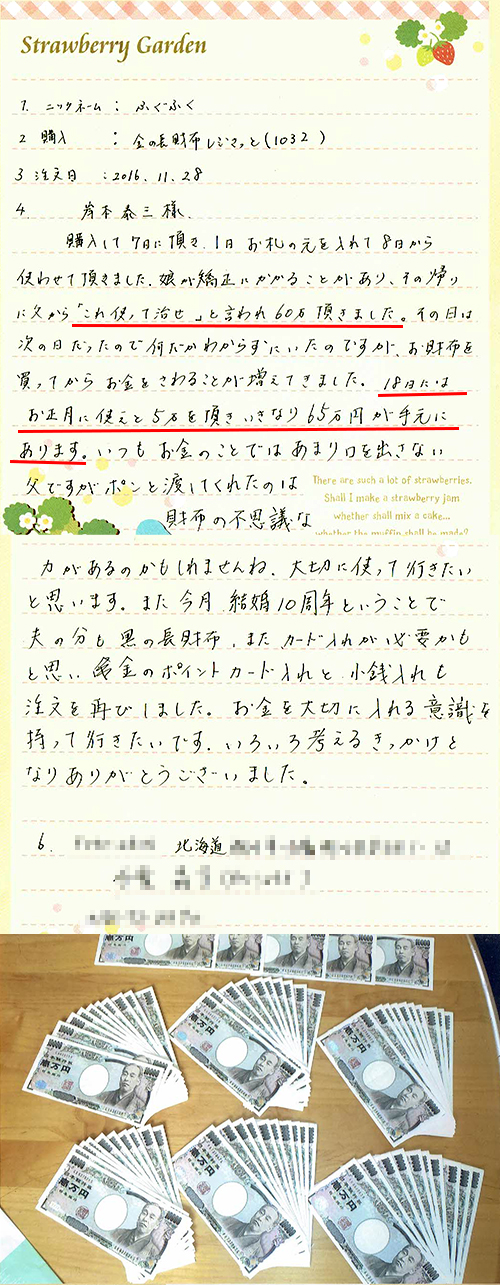 Strawberry Garden
1. ニックネーム : ふぐふく
2 購入 : 金の長財布レジまっと(1032)
3 注文日 : 2016.11.28
4. 岸本泰三様.
購入して7日に頂き、1日お札の元を入れて8日から
使わせて頂きました。娘が矯正にかかることがあり、その帰り
に父から「これ使って治せ」と言われ60万頂きました。その日は
次の日だったので何だかわからずにいたのですが、お財布を
買ってからお金をさわることが増えてきました。18日には
お正月に使えと5万を頂きいきなり65万円が手元に
あります。いつもお金のことではあまり口を出さない
父ですがポンと渡してくれたのは
There are such a lot of strawberries.
Shall I make a strawberry jam
whether shall mix a cake...
whether the muffin shall be made?
財布の不思議な
力があるのかもしれませんね、大切に使って行きたい
と思います。また今月、結婚10周年ということで
夫の分も黒の長財布、またカード入れが必要かも
と思い金のポイントカード入れと小銭入れも
注文を再びしました。お金を大切に入れる意識を
持って行きたいです、いろいろ考えるきっかけと
なりありがとうございました。
6. 北海道
壱万円
壱万円
壱万円
壱万円
壱万円
壱万円